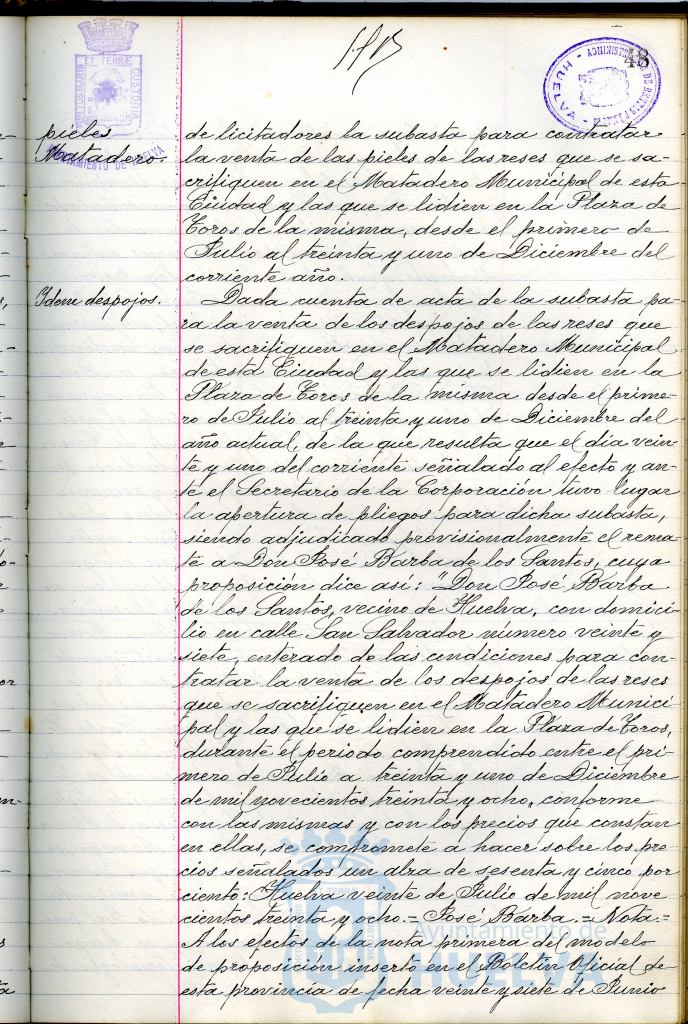 48
PORTUS MARIS ET TERRÆ CUSTODIA
AYUNTAMIENTO DE HUELVA
HUELVA
pieles
Matadero.
de licitadores la subasta para contratar
la venta de las pieles de las reses que se sa-
crifiquen en el Matadero Municipal de esta
Ciudad y las que se lidien en la Plaza de
Toros de la misma, desde el primero de
Julio al treinta y uno de Diciembre del
corriente año.
Idem despojos.
Dada cuenta de acta de la subasta pa-
ra la venta de los despojos de las reses que
se sacrifiquen en el Matadero Municipal
de esta Ciudad y las que se lidien en la
Plaza de Toros de la misma desde el prime-
ro de Julio al treinta y uno de Diciembre del
año actual, de la que resulta que el día vein-
te y uno del corriente señalado al efecto y an-
te el Secretario de la Corporación tuvo lugar
la apertura de pliegos para dicha subasta,
siendo adjudicado provisionalmente el rema-
te a Don José Barba de los Santos, cuya
proposición dice así: "Don José Barba
de los Santos, vecino de Huelva, con domici-
lio en calle San Salvador número veinte y
siete, enterado de las condiciones para con-
tratar la venta de los despojos de las reses
que se sacrifiquen en el Matadero Munici-
pal y las que se lidien en la Plaza de Toros,
durante el periodo comprendido entre el pri-
mero de Julio a treinta y uno de Diciembre
de mil novecientos treinta y ocho, conforme
con las mismas y con los precios que constan
en ellas, se compromete a hacer sobre los pre-
cios señalados un alza de sesenta y cinco por
ciento: Huelva veinte de Julio de mil nove
cientos treinta y ocho.= José Barba.= Nota.=
A los efectos de la nota primera del modelo
de proposición inserto en el Boletín Oficial de
esta provincia de fecha veinte y siete de Junio
Ayuntamiento de
HUELVA